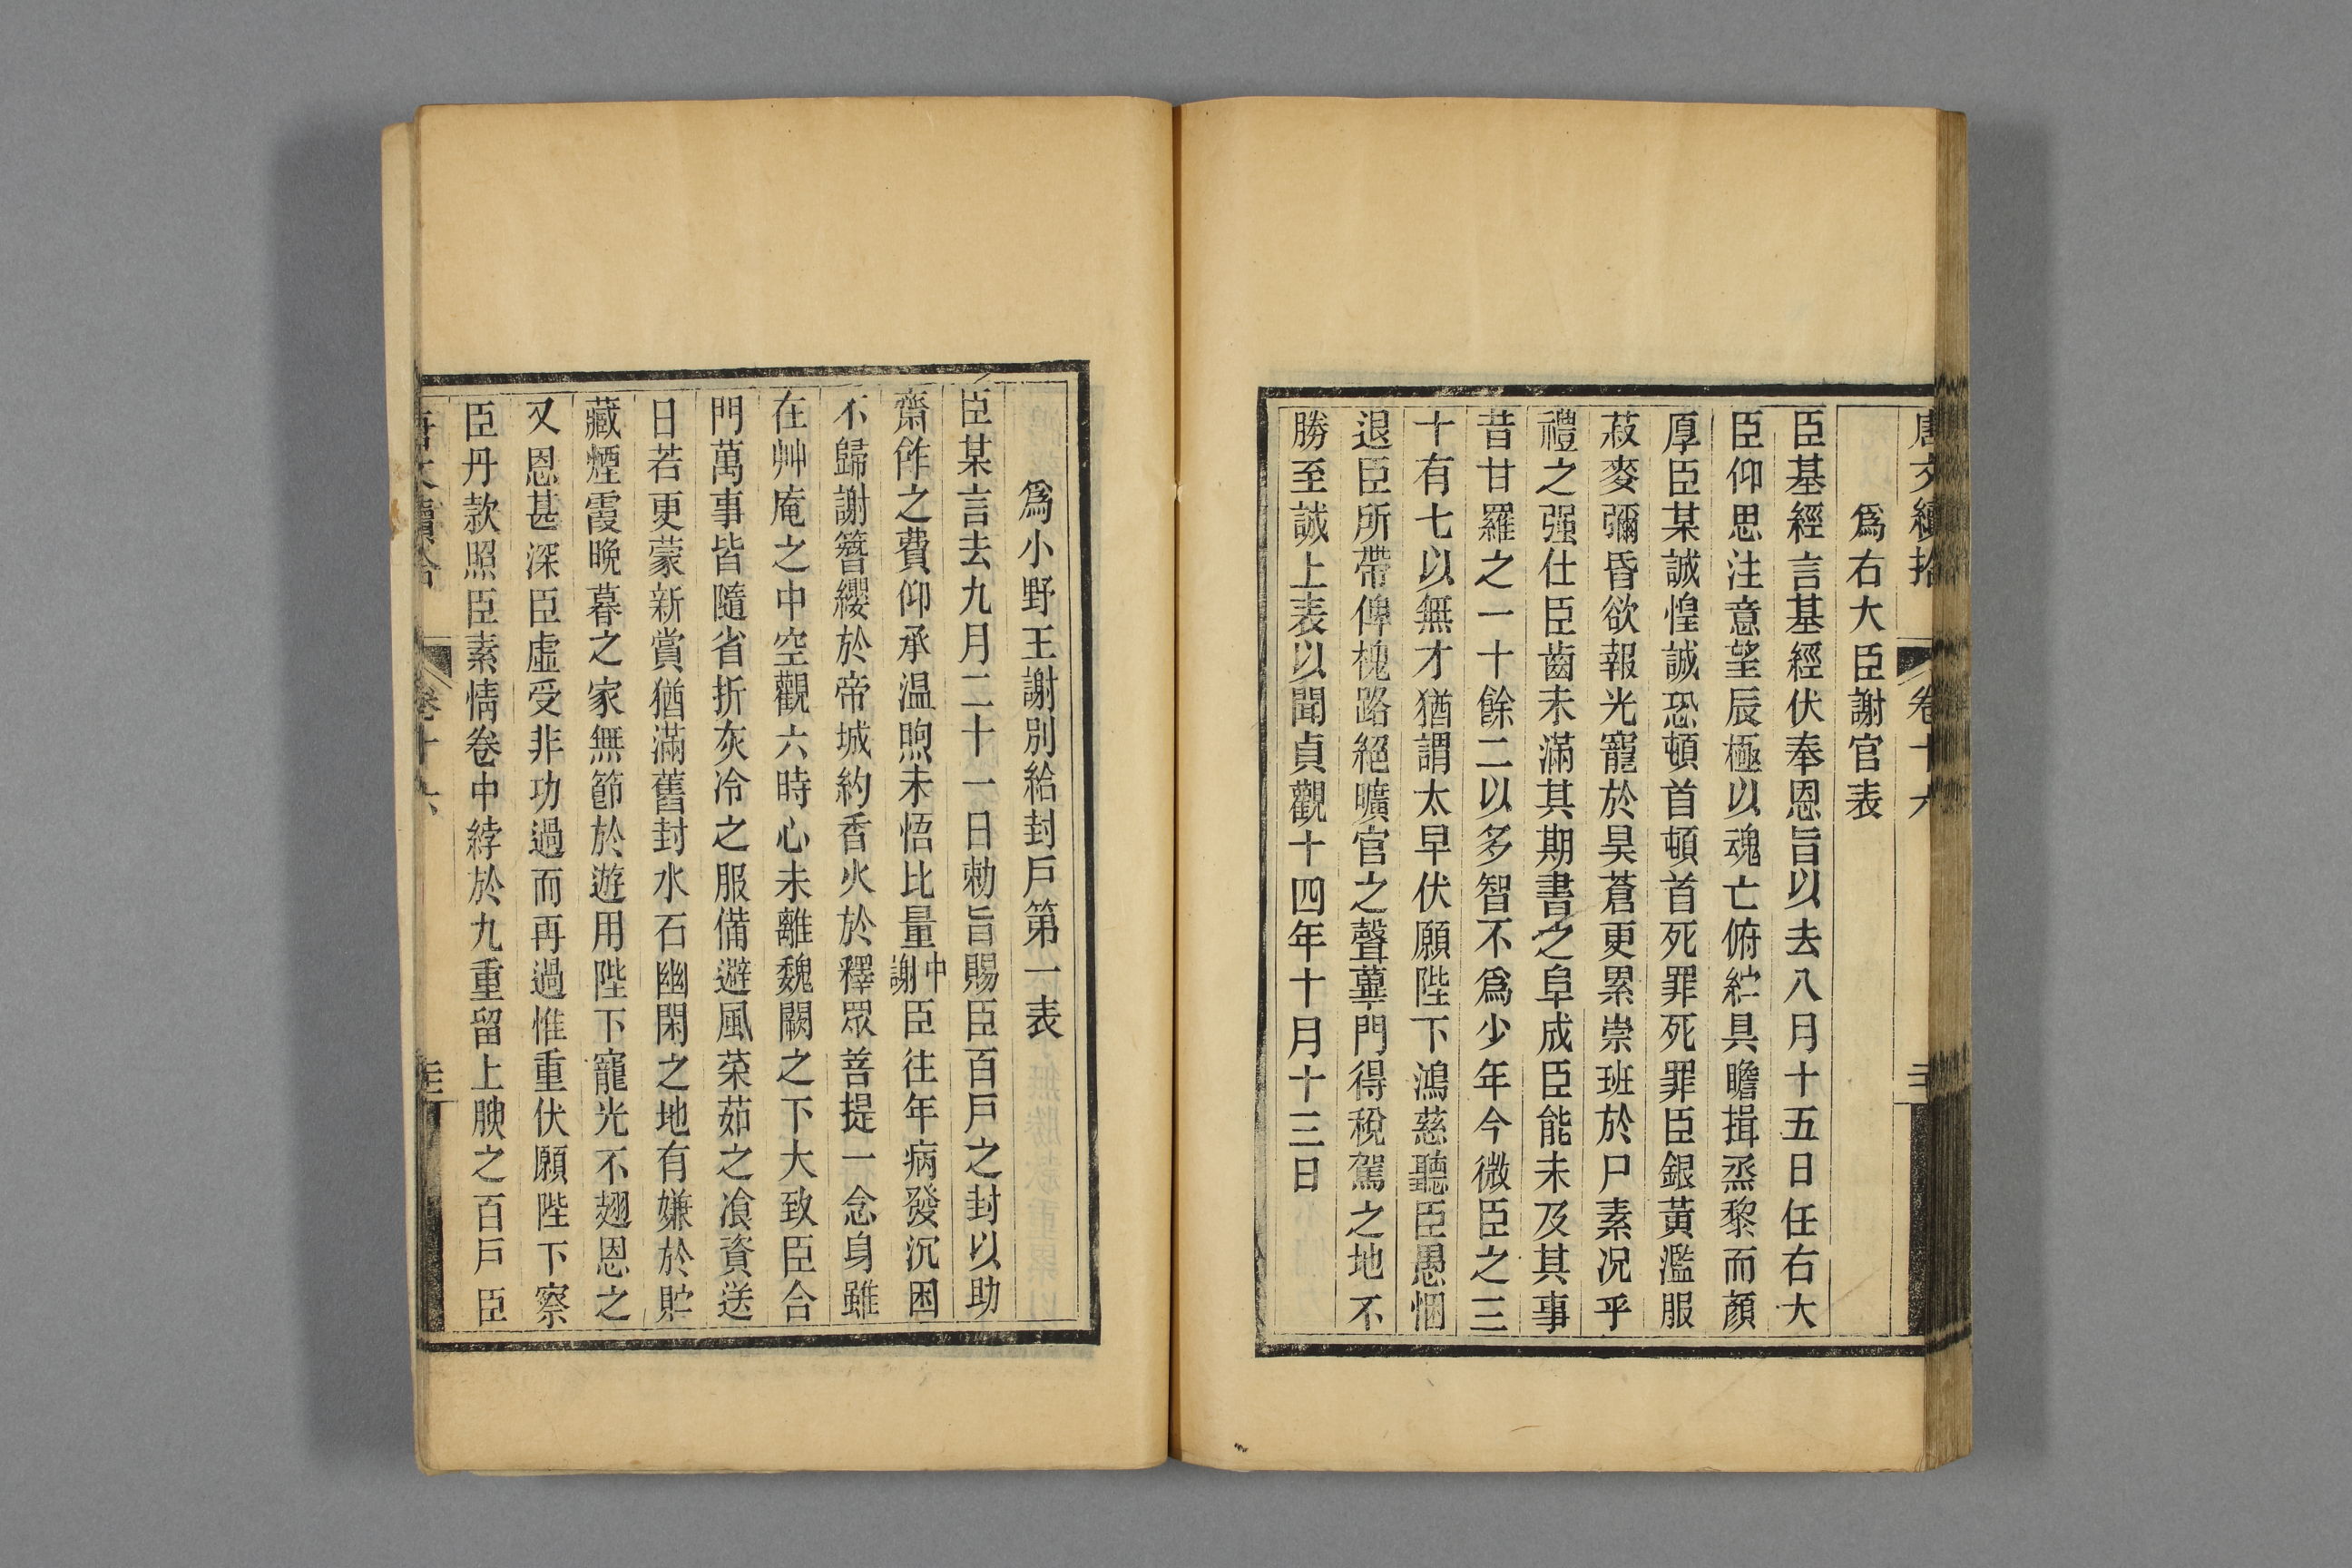 唐文續拾 卷十六
爲右大臣謝官表
臣基經言基經伏奉恩旨以去八月十五日任右大
臣仰思注意望辰極以魂亡俯綻具瞻揖烝黎而顏
厚臣某誠惶誠恐頓首頓首死罪死罪臣銀黃濫服
菽麥彌昏欲報光寵於昊蒼更累崇班於尸素况乎
禮之强仕臣齒未滿其期書之阜成臣能未及其事
昔甘羅之一十餘二以多智不爲少年今微臣之三
十有七以無才猶謂太早伏願陛下鴻慈聽臣愚悃
退臣所帶俾槐路絕曠官之聲蓽門得稅駕之地不
勝至誠上表以聞貞觀十四年十月十三日
爲小野王謝別給封戶第一表
臣某言去九月二十一日勅旨賜臣百戶之封以助
齋飵之費仰承温煦未悟比量中謝臣往年病發沉困
不歸謝簪纓於帝城約香火於釋眾菩提一念身雖
在艸庵之中空觀六時心未離魏闕之下大致臣合
門萬事皆隨省折灰冷之服備避風菜茹之飡資送
日若更蒙新賞猶滿舊封水石幽閑之地有嫌於貯
藏煙霞晚暮之家無節於遊用陛下寵光不翅恩之
又恩甚深臣虛受非功過而再過惟重伏願陛下察
臣丹款照臣素情卷中綍於九重留上腴之百戶臣
唐文續拾 卷十六